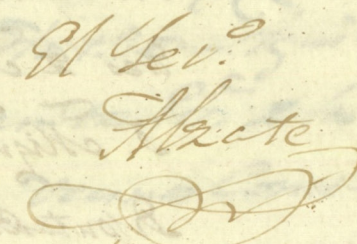 El Sevº
Alzate